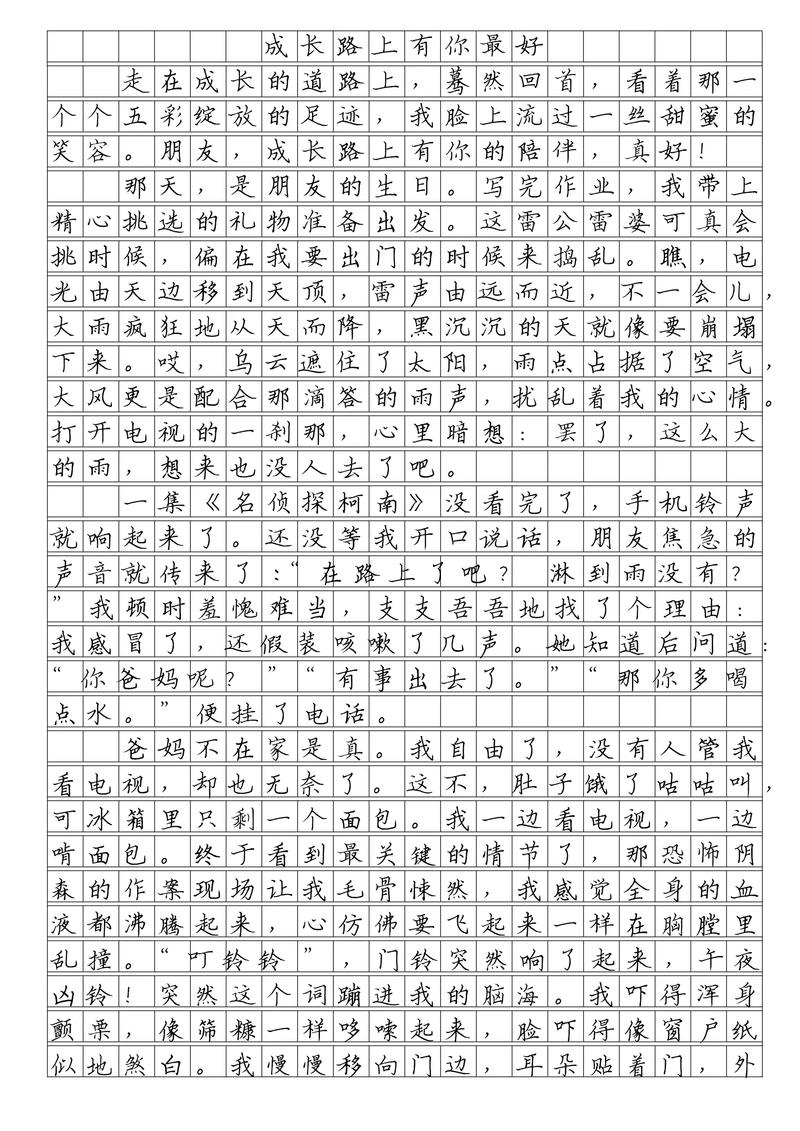 成长路上有你最好
走在成长的道路上，蓦然回首，看着那一
个个五彩绽放的足迹，我脸上流过一丝甜蜜的
笑容。朋友，成长路上有你的陪伴，真好！
那天，是朋友的生日。写完作业，我带上
精心挑选的礼物准备出发。这雷公雷婆可真会
挑时候，偏在我要出门的时候来捣乱。瞧，电
光由天边移到天顶，雷声由远而近，不一会儿，
大雨疯狂地从天而降，黑沉沉的天就像要崩塌
下来。哎，乌云遮住了太阳，雨点占据了空气，
大风更是配合那滴答的雨声，扰乱着我的心情。
打开电视的一刹那，心里暗想：罢了，这么大
的雨，想来也没人去了吧。
一集《名侦探柯南》没看完了，手机铃声
就响起来了。还没等我开口说话，朋友焦急的
声音就传来了：“在路上了吧？ 淋到雨没有？
”我顿时羞愧难当，支支吾吾地找了个理由：
我感冒了，还假装咳嗽了几声。她知道后问道：
“你爸妈呢？”“有事出去了。”“那你多喝
点水。”便挂了电话。
爸妈不在家是真。我自由了，没有人管我
看电视，却也无奈了。这不，肚子饿了咕咕叫，
可冰箱里只剩一个面包。我一边看电视，一边
啃面包。终于看到最关键的情节了，那恐怖阴
森的作案现场让我毛骨悚然，我感觉全身的血
液都沸腾起来，心仿佛要飞起来一样在胸膛里
乱撞。“叮铃铃”，门铃突然响了起来，午夜
凶铃！突然这个词蹦进我的脑海。我吓得浑身
颤栗，像筛糠一样哆嗦起来，脸吓得像窗户纸
似地煞白。我慢慢移向门边，耳朵贴着门，外